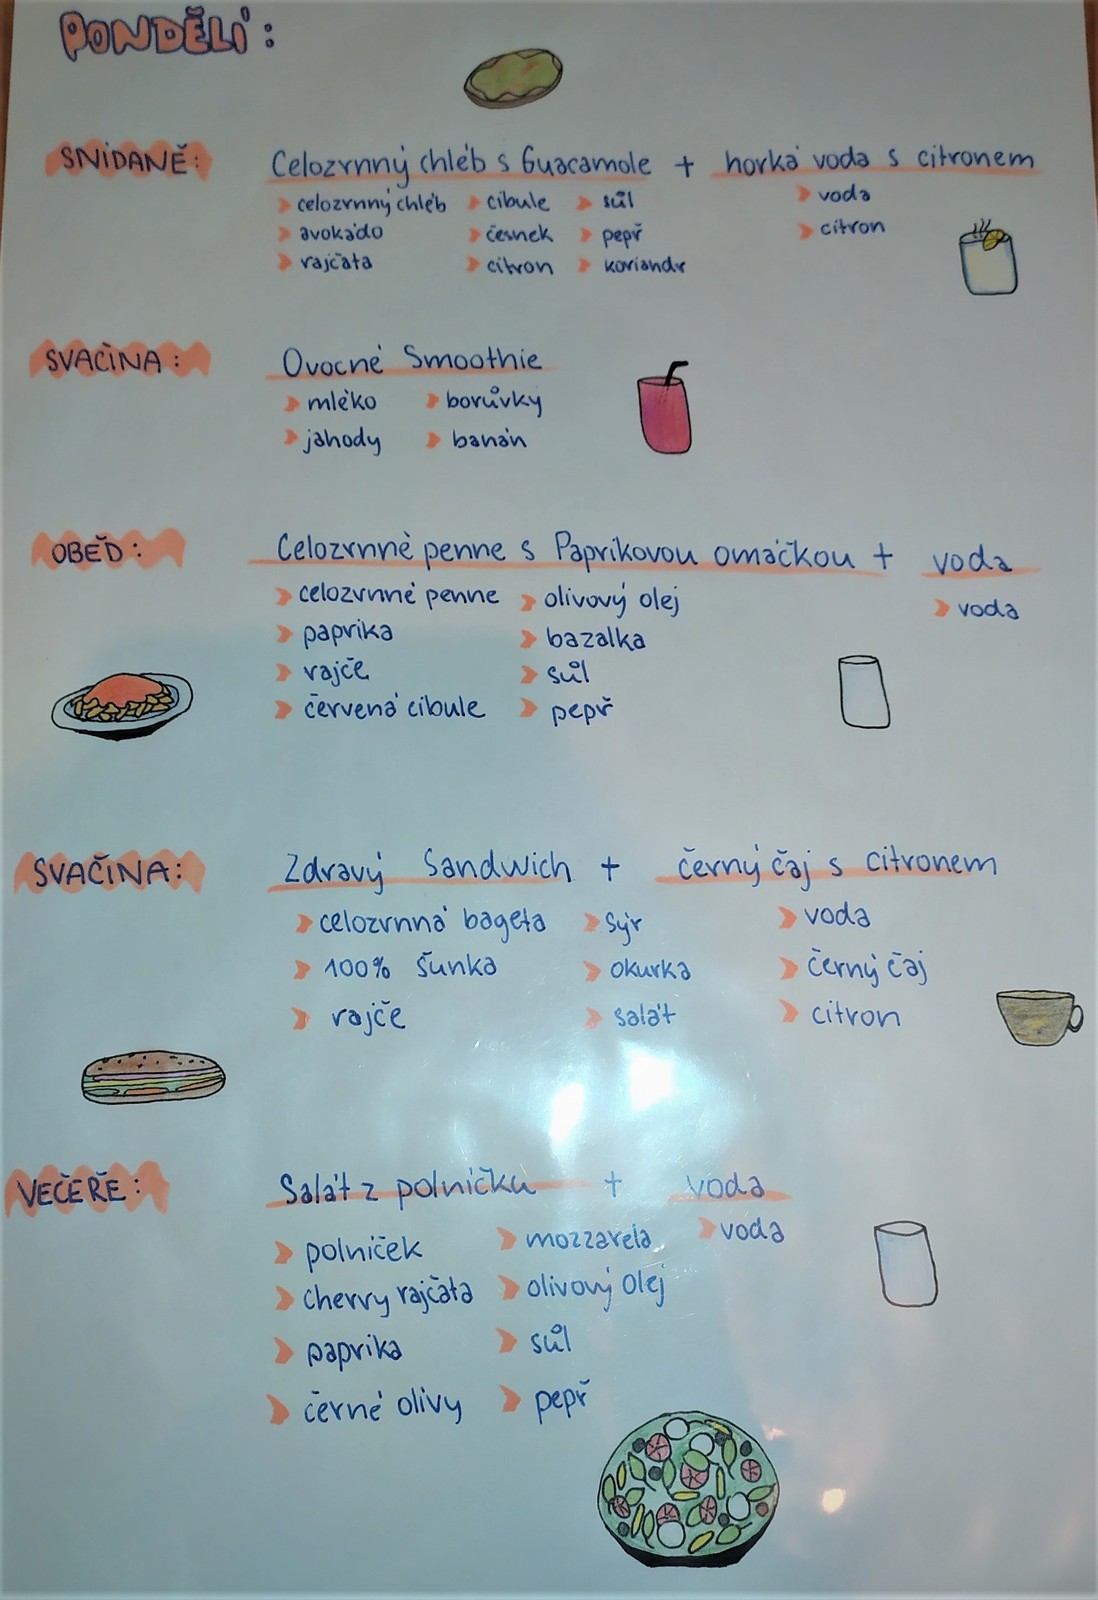 PONDĚLÍ:
SNÍDANĚ: Celozrnný chléb s Guacamole + horká voda s citronem
celozrnný chléb cibule sůl voda
avokádo česnek pepř citron
rajčata citron koriandr
SVAČINA: Ovocné Smoothie
mléko borůvky
jahody banán
OBĚD: Celozrnné penne s Paprikovou omáčkou + voda
celozrnné penne olivový olej voda
paprika bazalka
rajče sůl
červená cibule pepř
SVAČINA: Zdravý Sandwich + černý čaj s citronem
celozrnná bageta sýr voda
100% šunka okurka černý čaj
rajče salát citron
VEČEŘE: Salát z polníčku + voda
polníček mozzarela voda
cherry rajčata olivový olej
paprika sůl
černé olivy pepř